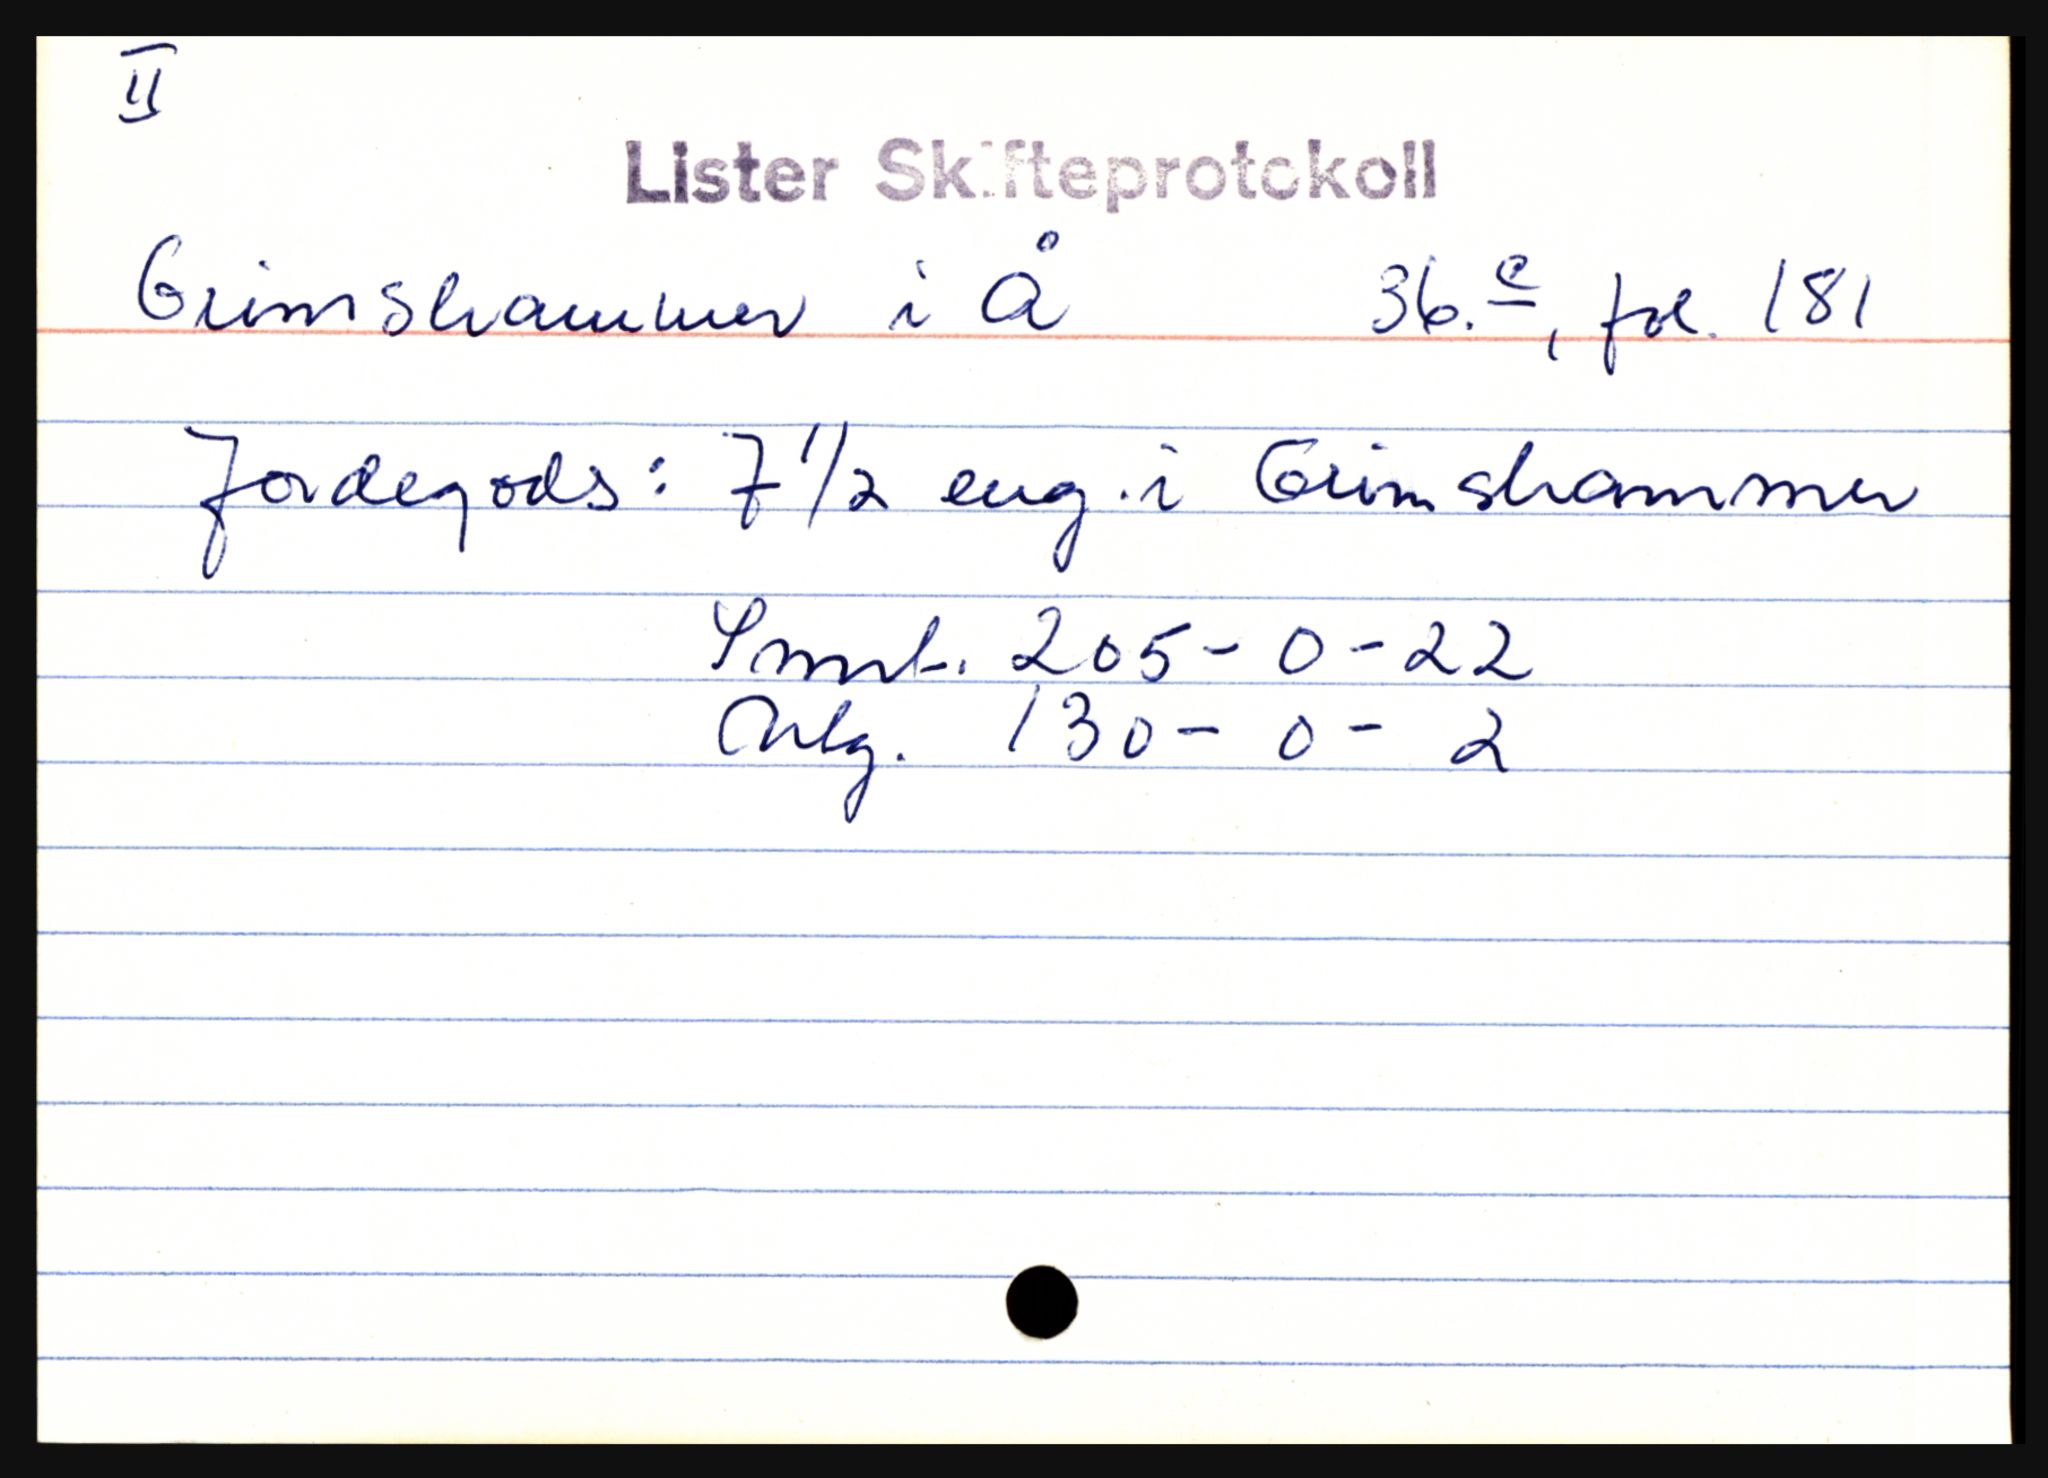 II
Lister Skifteprotokoll
Grimshammer i Å 36.c, fol. 181
Jordegods: 7 1/2 eng. i Grimshammer
Smst. 205 - 0 - 22
Avlg. 130 - 0 - 2